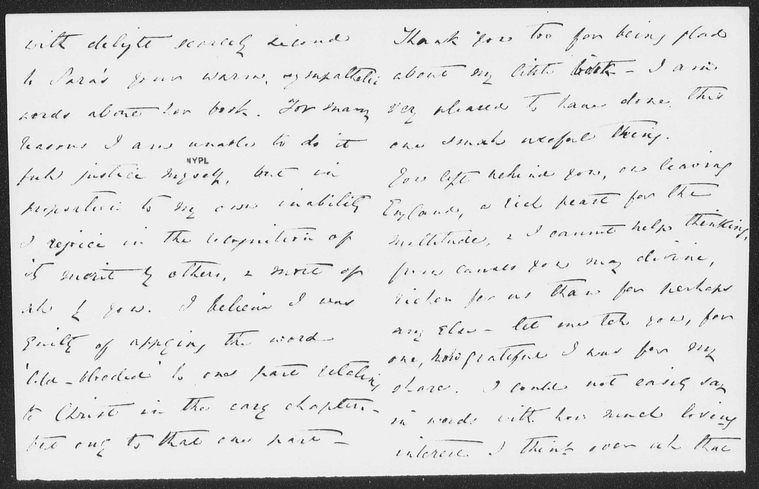 with delight scarcely second
to Sara's your warm, sympathetic
words about her book. For many
reasons I am unable to do it
full justice myself, but in
NYPL
proportion to my own inability
I rejoice in the recognition of
its merit by others, & most of
all by you. I believe I was
guilty of applying the word
'cold-blooded' to one part relating
to Christ in the early chapters -
but only to that one part -
Thank you too for being glad
about my little - I am
very pleased to have done this
one small useful thing.
You left behind you, on leaving
England, a rich feast for the
multitude, & I cannot help thinking,
from causes you may divine,
richer for us than for perhaps
any else - let me tell you, for
one, how grateful I was for my
share. I could not easily say
in words with how much loving
interest I think over all that